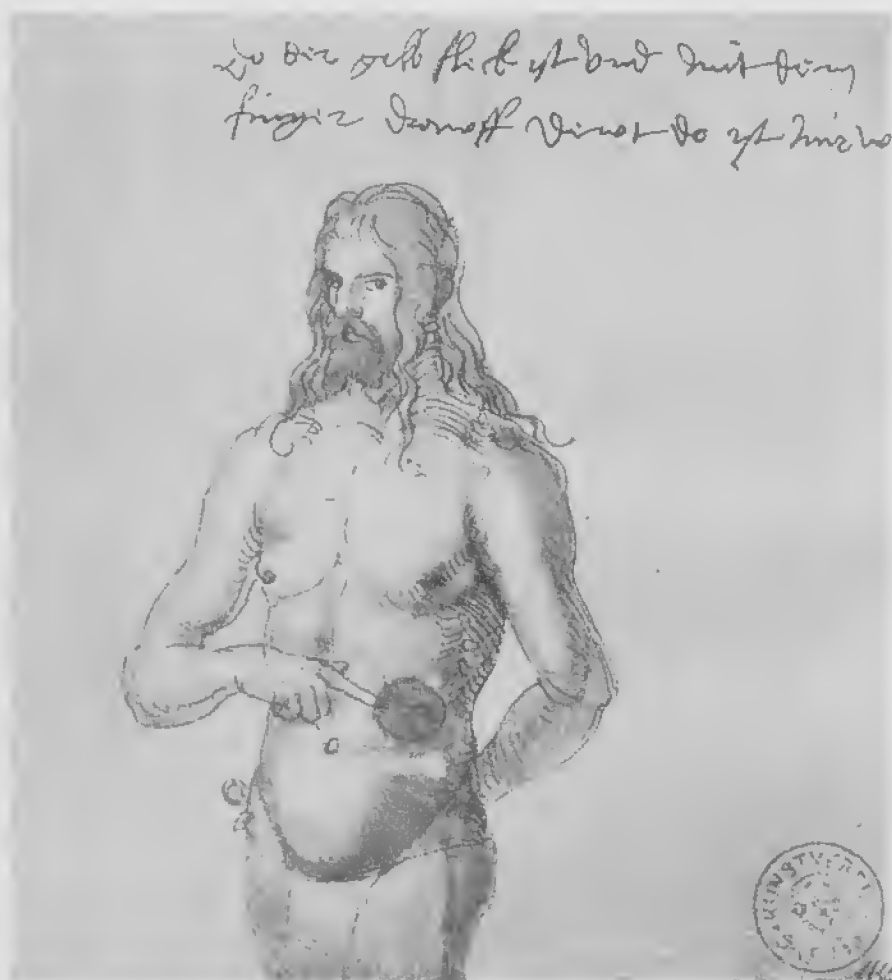 Do der gelb fleck ist und mit dem
finger drawff dewt do ist mir we
KUNSTVEREIN